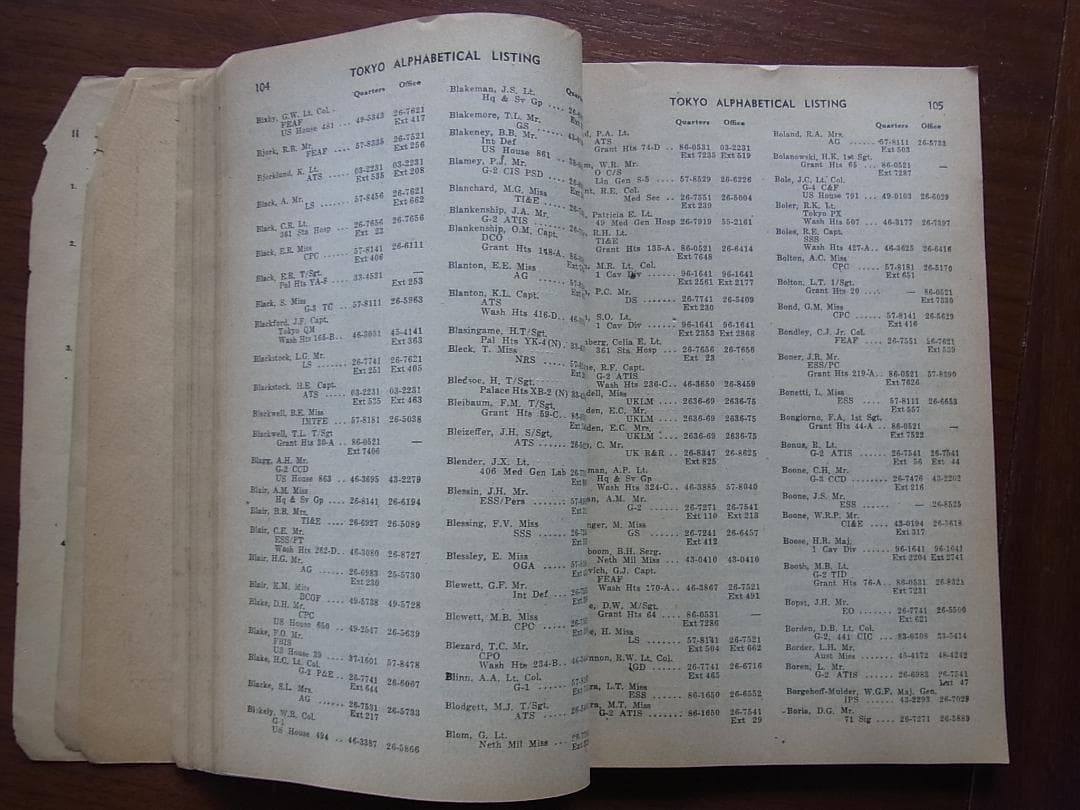 104
TOKYO ALPHABETICAL LISTING
Quarters Office
Bixby, G.W. Lt. Col.
FEAF
US House 481 ... 49-5343 26-7621
Ext 417
Bjork, R.R. Mr.
FEAF ... 57-8335 26-7521
Ext 256
Bjorklund, K. Lt.
ATS ... 03-2231 03-2231
Ext 535 Ext 208
Black, A. Mr.
LS ... 57-8456 26-7621
Ext 662
Black, C.R. Lt.
361 Sta Hosp ... 26-7656 26-7656
Ext 23
Black, E.R. Miss
CPC ... 57-8141 26-6111
Ext 406
Black, E.R. T/Sgt.
Pal Hts YA-8 ... 33-4521 —
Ext 253
Black, S. Miss
G-3 TC ... 57-8111 26-5963
Blackford, J.F. Capt.
Tokyo QM
Wash Hts 165-B.. 46-3031 45-4141
Ext 363
Blackstock, L.G. Mr.
LS ... 26-7741 26-7621
Ext 251 Ext 405
Blackstock, H.E. Capt.
ATS ... 03-2231 03-2231
Ext 535 Ext 463
Blackwell, B.E. Miss
IMTFE ... 57-8181 26-5038
Blackwell, T.L. T/Sgt
Grant Hts 30-A .. 86-0521 —
Ext 7406
Blagg, A.H. Mr.
G-2 CCD
US House 863 .. 46-3695 43-2279
Blair, A.M. Miss
Hq & Sv Gp ... 26-8141 26-6194
Blair, B.B. Mrs.
TI&E .... 26-6927 26-5089
Blair, C.E. Mr.
ESS/FT
Wash Hts 262-D.. 46-3080 26-8727
Blair, H.G. Mr.
AG .... 26-6983 25-5730
Ext 230
Blair, K.M. Miss
DCGF .... 49-5738 49-5728
Blake, D.H. Mr.
CPC
US House 650 .. 49-2547 26-5639
Blake, F.O. Mr.
FBIS
US House 29 .... 37-1601 57-8478
Blake, H.C. Lt. Col.
G-1 P&E .. 26-7741 26-6007
Ext 644
Blacke, S.L. Mrs.
AG .... 26-7531 26-5733
Ext 217
Blakely, W.B. Col.
G-1
US House 494 .. 46-3387 26-5866
Blakeman, J.S. Lt.
Hq & Sv Gp
Blakemore, T.L. Mr.
GS
Blakeney, B.B. Mr.
Int Def
US House 861
Blamey, P.J. Mr.
G-2 CIS PSD
Blanchard, M.G. Miss
TI&E
Blankenship, J.A. Mr.
G-2 ATIS
Blankenship, O.M. Capt.
DCO
Grant Hts 148-A
Blanton, E.E. Miss
AG
Blanton, K.L. Capt.
ATS
Wash Hts 416-D
Blasingame, H.T/Sgt.
Pal Hts YK-4(N)
Bleck, T. Miss
NRS
Bledsoe, H. T/Sgt.
Palace Hts XB-2 (N)
Bleibaum, F.M. T/Sgt.
Grant Hts 59-C
Bleizeffer, J.H. S/Sgt,
ATS
Blender, J.X. Lt.
406 Med Gen Lab
Blessin, J.H. Mr.
ESS/Pers
Blessing, F.V. Miss
SSS
Blessley, E. Miss
OGA
Blewett, G.F. Mr.
Int Def
Blewett, M.B. Miss
CPC
Blezard, T.C. Mr.
CPO
Wash Hts 234-B
Blinn, A.A. Lt. Col.
G-1
Blodgett, M.J. T/Sgt.
ATS
Blom, G. Lt.
Neth Mil Miss
TOKYO ALPHABETICAL LISTING 105
Quarters Office
P.A. Lt.
ATS
Grant Hts 74-D .. 86-0531 03-2231
Ext 7235 Ext 519
W.R. Mr.
O C/S
Lin Gen S-5 .... 57-8529 26-6226
R.E. Col.
Med Sec .. 26-7551 26-5004
Ext 239
Patricia E. Lt.
49 Med Gen Hosp 26-7919 55-2161
R.H. Lt.
TI&E
Grant Hts 135-A.. 86-0521 26-6414
Ext 7648
M.R. Lt. Col.
1 Cav Div ...... 96-1641 96-1641
Ext 2561 Ext 2177
P.C. Mr.
DS ....... 26-7741 26-5409
Ext 230
S.O. Lt.
1 Cav Div ...... 96-1641 96-1641
Ext 2353 Ext 2868
berg, Celia E. Lt.
361 Sta Hosp ... 26-7656 26-7656
Ext 23
R.F. Capt.
G-2 ATIS
Wash Hts 236-C.. 46-3650 26-8459
dell, Miss
UKLM ....... 2636-69 2636-75
den, E.C. Mr.
UKLM ....... 2636-69 2636-75
den, E.C. Mrs.
UKLM ....... 2636-69 2636-75
C. Mr.
UK R&R .. 26-8347 26-8625
Ext 825
man, A.P. Lt.
Hq & Sv Gp
Wash Hts 324-C.. 46-3885 57-8040
A.M. Mr.
G-2 ....... 26-7271 26-7541
Ext 110 Ext 213
nger, M. Miss
GS ....... 26-7241 26-6457
Ext 412
boom, B.H. Serg.
Neth Mil Miss .. 43-0410 43-0410
vich, G.J. Capt.
FEAF
Wash Hts 170-A.. 46-3867 26-7521
Ext 491
D.W. M/Sgt.
Grant Hts 64 .... 86-0531 —
Ext 7286
H. Miss
LS ....... 57-8141 26-7521
Ext 504 Ext 662
nnon, R.W. Lt. Col.
IGD .... 26-7741 26-6716
Ext 465
L.T. Miss
ESS ....... 86-1650 26-6552
M.T. Miss
G-2 ATIS ....... 86-1650 26-7541
Ext 29
Quarters Office
Boland, R.A. Mrs.
AG .... 57-8111 26-5733
Ext 503
Bolanowski, H.K. 1st Sgt.
Grant Hts 65 ... 86-0521 —
Ext 7287
Bole, J.C. Lt. Col.
G-4 C&F
US House 791 .. 49-0103 26-6029
Boler, R.K. Lt.
Tokyo PX
Wash Hts 507 .. 46-3177 26-7397
Boles, R.E. Capt.
SSS
Wash Hts 427-A.. 46-3625 26-6416
Bolton, A.C. Miss
CPC .... 57-8181 26-5170
Ext 651
Bolton, L.T. 1/Sgt.
Grant Hts 20 .... — 86-0521
Ext 7330
Bond, G.M. Miss
CPC ..... 57-8141 26-5629
Ext 416
Bondley, C.J. Jr. Col.
FEAF .... 26-7551 26-7621
Ext 539
Boner, J.R. Mr.
ESS/PC
Grant Hts 219-A.. 86-0521 57-8290
Ext 7626
Bonetti, L. Miss
ESS ..... 57-8111 26-6653
Ext 557
Bongiorno, F.A. 1st Sgt.
Grant Hts 44-A .. 86-0521 —
Ext 7522
Bonus, R. Lt.
G-2 ATIS ..... 26-7541 26-7541
Ext 56 Ext 44
Boone, C.H. Mr.
G-3 CCD .... 26-7476 43-2202
Ext 216
Boone, J.S. Mr.
ESS ....... — 26-8525
Boone, W.R.P. Mr.
CI&E ... 43-0194 26-5618
Ext 317
Boose, H.R. Maj.
1 Cav Div ...... 96-1641 96-1641
Ext 2204 Ext 2741
Booth, M.B. Lt.
G-2 TID
Grant Hts 76-A.. 86-0531 26-8321
Ext 7231
Bopst, J.H. Mr.
EO ....... 26-7741 26-5500
Ext 621
Borden, D.B. Lt. Col.
G-2, 441 CIC ... 33-0308 33-5414
Border, L.H. Mr.
Aust Miss ....... 45-4172 48-4242
Boren, L. Mr.
G-2 ATIS ....... 26-6983 26-7541
Ext 47
Borgehoff-Mulder, W.G.F. Maj. Gen.
IPS ..... 43-2293 26-7029
Boris, D.G. Mr.
71 Sig .... 26-7271 26-5889